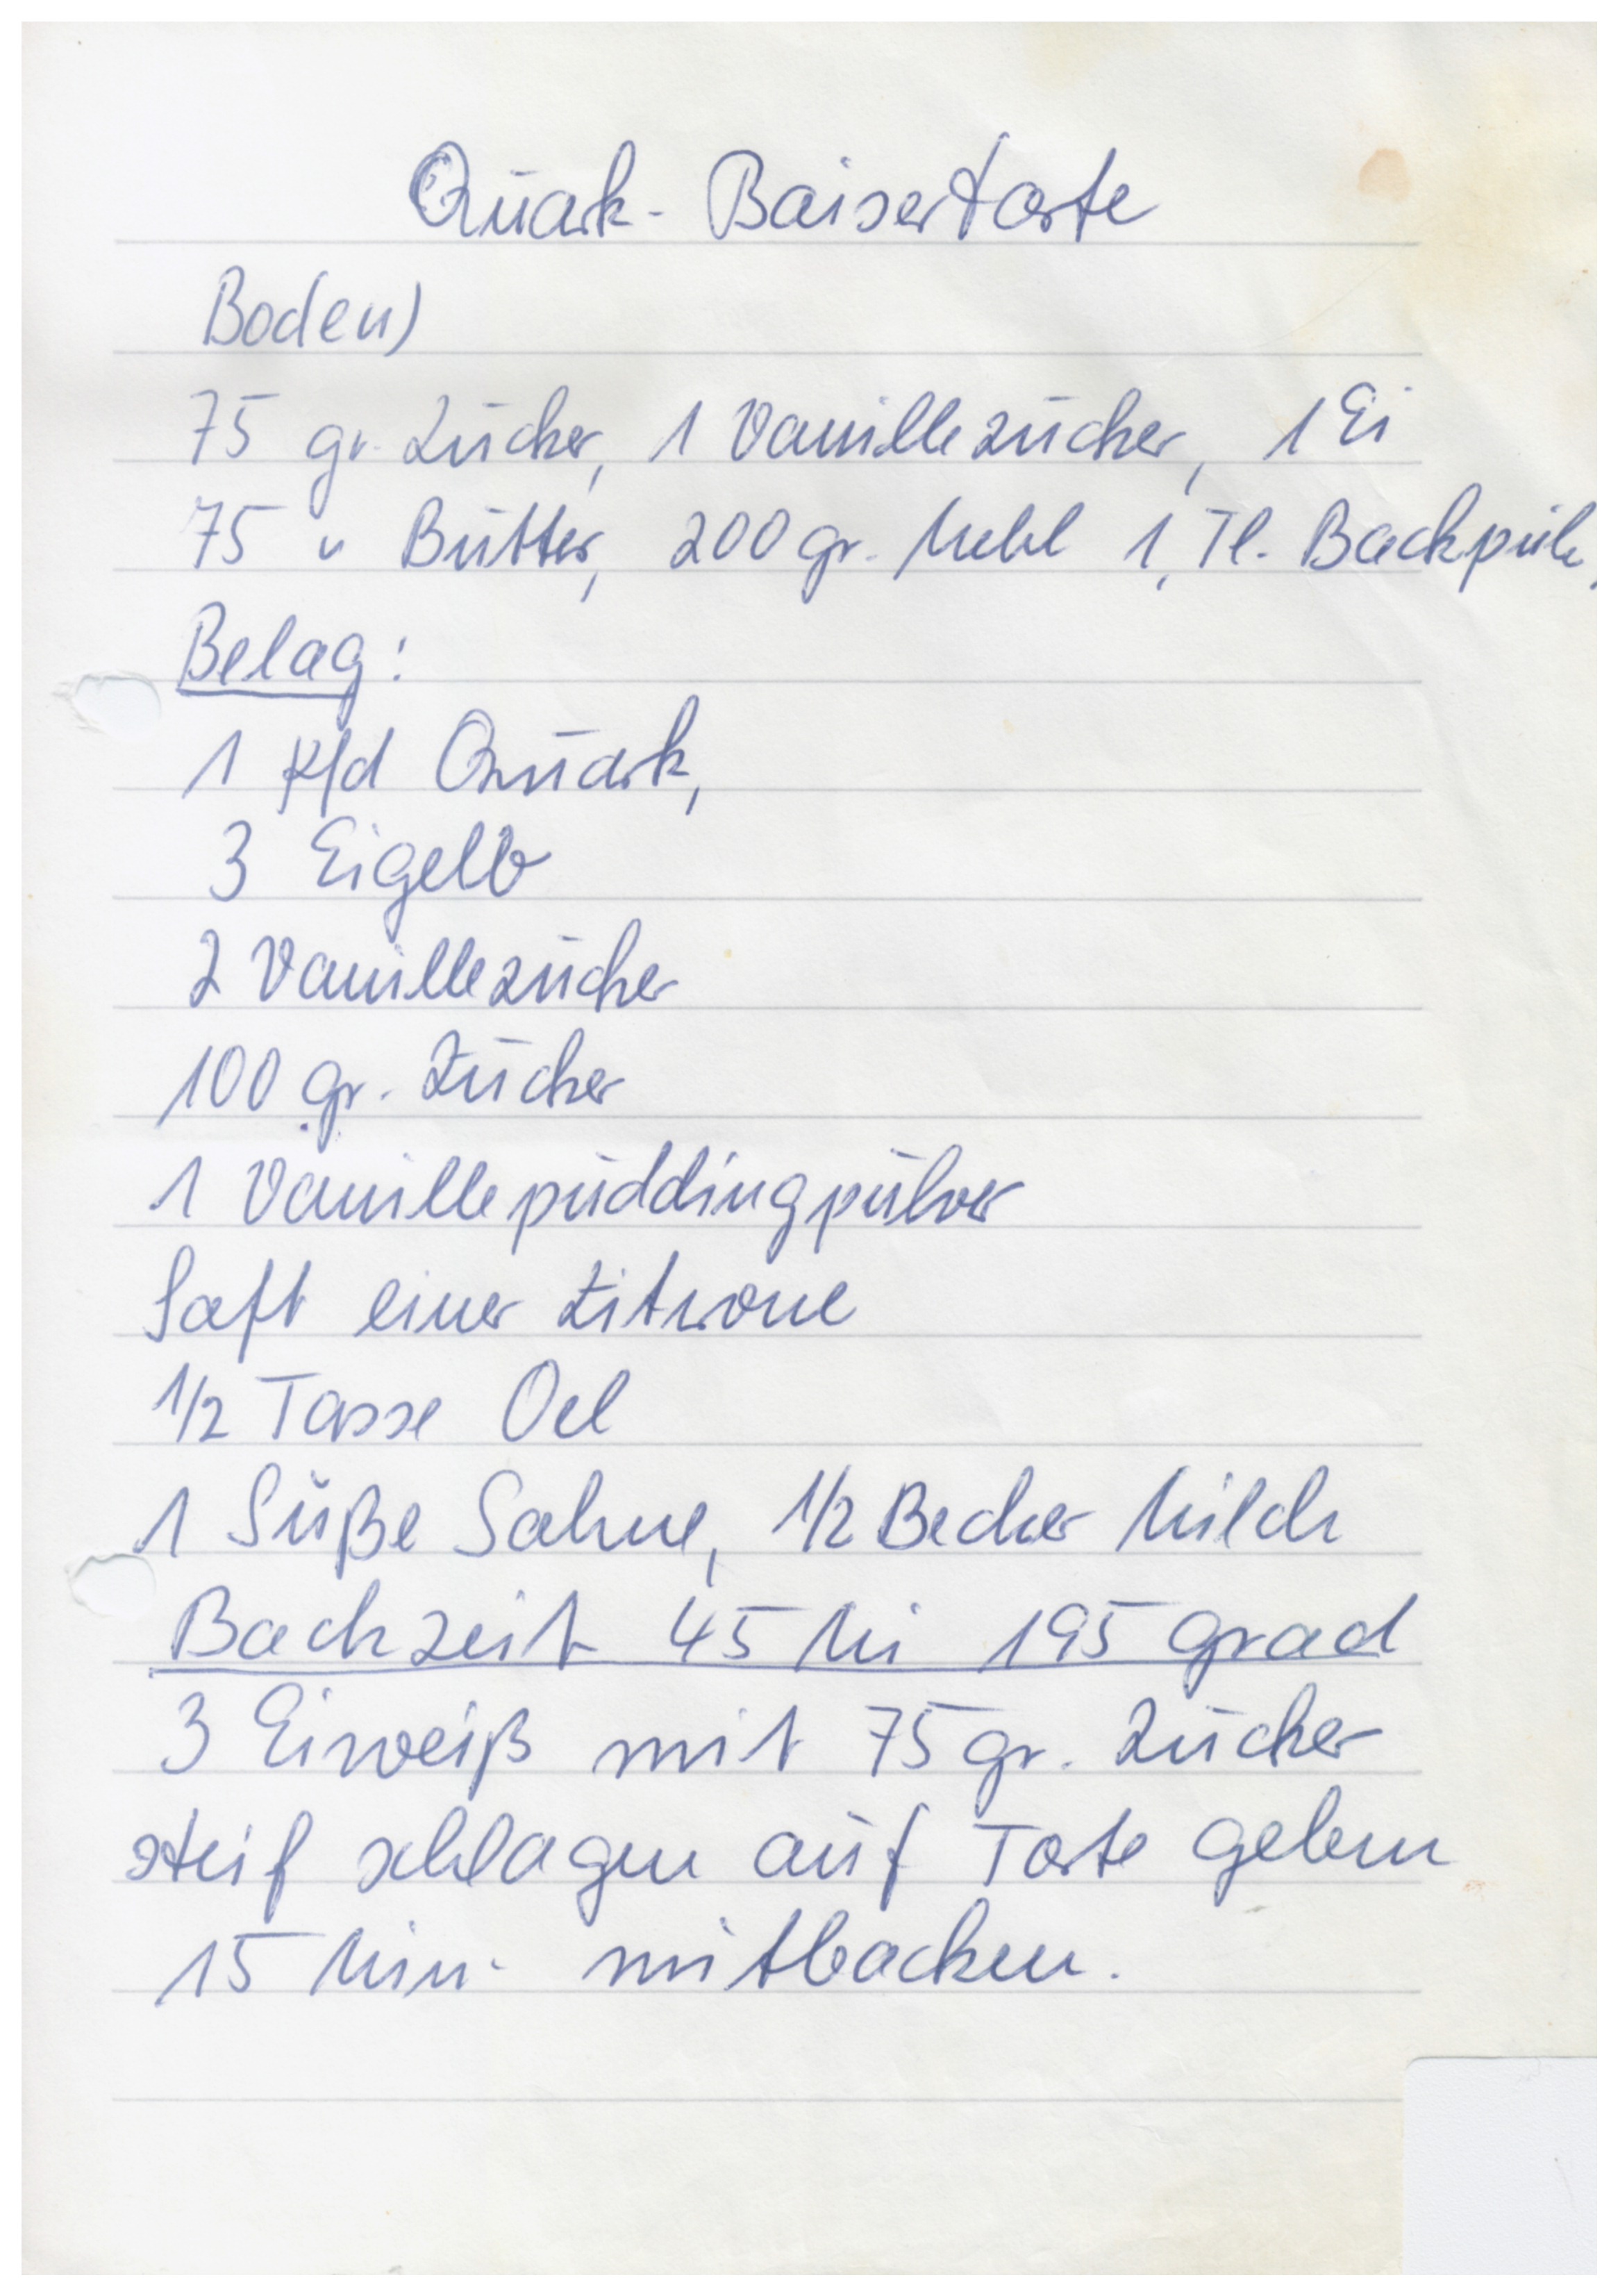 Quark-Baisertorte
Boden)
75 gr. Zucker, 1 Vanillezucker, 1 Ei
75 " Butter, 200 gr. Mehl 1, Tl. Backpulv,
Belag:
1 Pfd Quark,
3 Eigelb
2 Vanillezucker
100 gr. Zucker
1 Vanillepuddingpulver
Saft einer Zitrone
1/2 Tasse Oel
1 Süße Sahne, 1/2 Becher Milch
Backzeit 45 Mi 195 grad
3 Eiweiß mit 75 gr. Zucker
steif schlagen auf Torte gebem
15 Min. mitbacken.